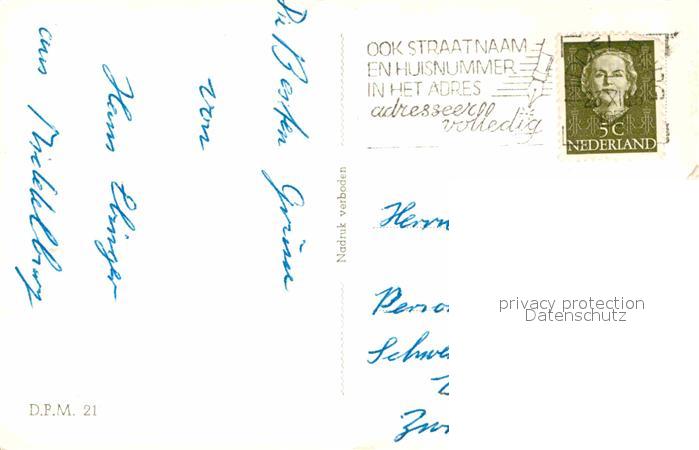 Die Besten Grüsse
von
Hans Ebinger
aus Middelburg
D.P.M. 21
Nadruk verboden
OOK STRAATNAAM
EN HUISNUMMER
IN HET ADRES
adresseer
volledig
5 C
NEDERLAND
Herrn
Perso
Schwe
privacy protection
Datenschutz